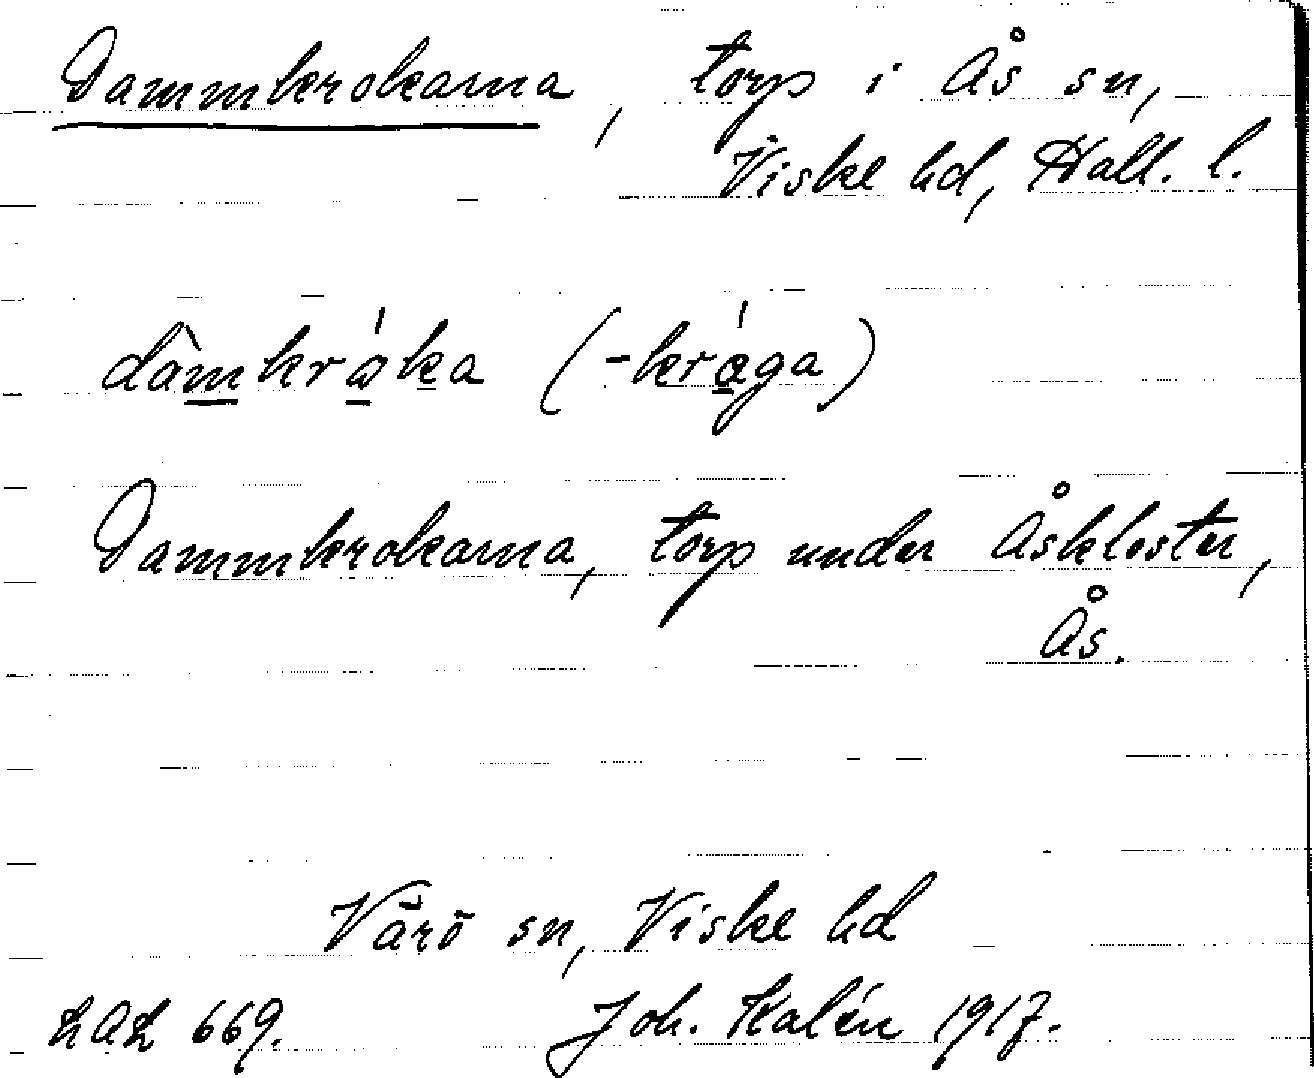 Dammkrokarna, torp i Ås sn,
Viske hd, Hall. l.
dàmkråka (-kråga)
Dammkrokarna, torp under Åskloster,
Ås.
Värö sn, Viske hd
LAL 669. Joh. Kalén 1917.